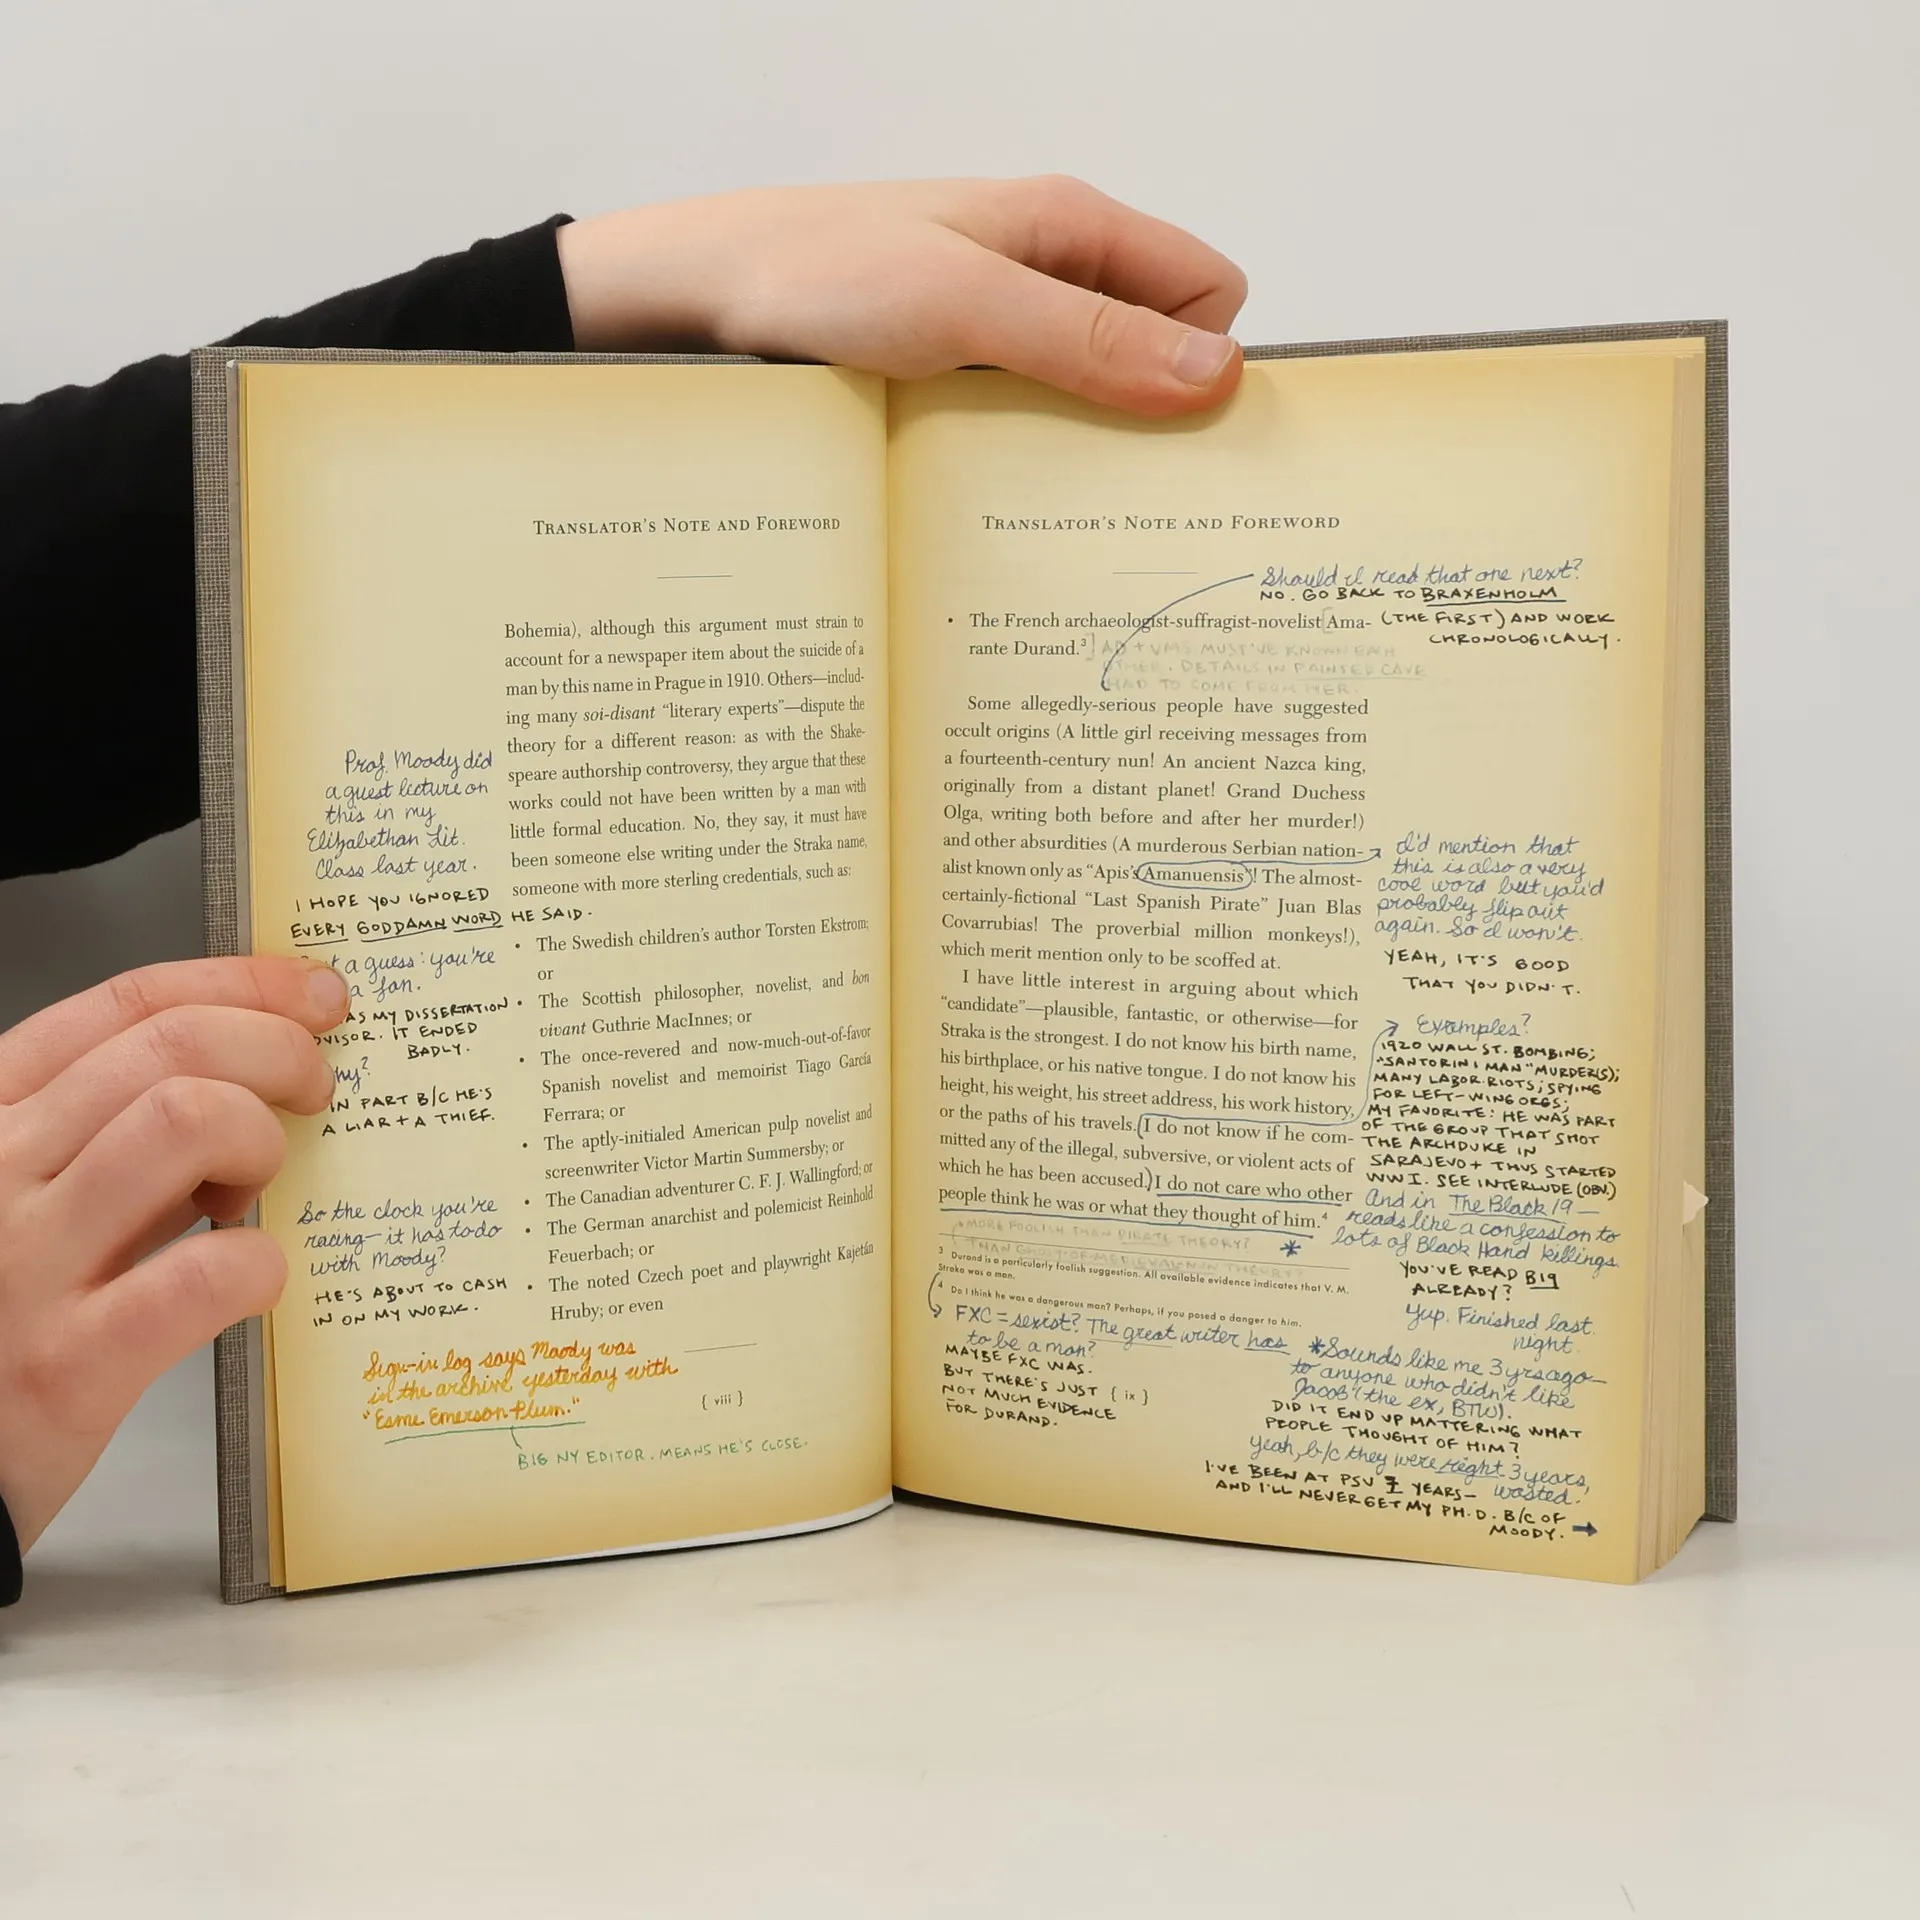 TRANSLATOR'S NOTE AND FOREWORD
Bohemia), although this argument must strain to
account for a newspaper item about the suicide of a
man by this name in Prague in 1910. Others—includ-
ing many soi-disant “literary experts”—dispute the
theory for a different reason: as with the Shake-
speare authorship controversy, they argue that these
works could not have been written by a man with
little formal education. No, they say, it must have
been someone else writing under the Straka name,
someone with more sterling credentials, such as:
• The Swedish children's author Torsten Ekstrom;
or
• The Scottish philosopher, novelist, and bon
vivant Guthrie MacInnes; or
• The once-revered and now-much-out-of-favor
Spanish novelist and memoirist Tiago García
Ferrara; or
• The aptly-initialed American pulp novelist and
screenwriter Victor Martin Summersby; or
• The Canadian adventurer C. F. J. Wallingford; or
• The German anarchist and polemicist Reinhold
Feuerbach; or
• The noted Czech poet and playwright Kajetán
Hruby; or even
{ viii }
Prof. Moody did
a guest lecture on
this in my
Elizabethan Lit.
Class last year.
I HOPE YOU IGNORED
EVERY GODDAMN WORD HE SAID.
a guess: you're
a fan.
MY DISSERTATION
IT ENDED
BADLY.
IN PART B/C HE'S
A LIAR + A THIEF.
So the clock you're
racing—it has to do
with Moody?
HE'S ABOUT TO CASH
IN ON MY WORK.
Sign-in log says Moody was
in the archive yesterday with
“Esme Emerson Plum.”
BIG NY EDITOR. MEANS HE'S CLOSE.
TRANSLATOR'S NOTE AND FOREWORD
Should I read that one next?
NO. GO BACK TO BRAXENHOLM
(THE FIRST) AND WORK
CHRONOLOGICALLY.
• The French archaeologist-suffragist-novelist [Ama-
rante Durand.³]
AD + VMS MUST'VE KNOWN EACH
OTHER. DETAILS IN PAINTED CAVE
HAD TO COME FROM HER.
Some allegedly-serious people have suggested
occult origins (A little girl receiving messages from
a fourteenth-century nun! An ancient Nazca king,
originally from a distant planet! Grand Duchess
Olga, writing both before and after her murder!)
and other absurdities (A murderous Serbian nation-
alist known only as “Apis's Amanuensis”! The almost-
certainly-fictional “Last Spanish Pirate” Juan Blas
Covarrubias! The proverbial million monkeys!),
which merit mention only to be scoffed at.
I have little interest in arguing about which
“candidate”—plausible, fantastic, or otherwise—for
Straka is the strongest. I do not know his birth name,
his birthplace, or his native tongue. I do not know his
height, his weight, his street address, his work history,
or the paths of his travels. (I do not know if he com-
mitted any of the illegal, subversive, or violent acts of
which he has been accused.) I do not care who other
people think he was or what they thought of him.⁴
*
MORE FOOLISH THAN PIRATE THEORY?
THAN GHOST-OF-MEDIEVAL-NUN THEORY?
3 Durand is a particularly foolish suggestion. All available evidence indicates that V. M.
Straka was a man.
4 Do I think he was a dangerous man? Perhaps, if you posed a danger to him.
{ ix }
I'd mention that
this is also a very
cool word but you'd
probably flip out
again. So I won't.
YEAH, IT'S GOOD
THAT YOU DIDN'T.
Examples?
1920 WALL ST. BOMBING;
“SANTORINI MAN” MURDER(S);
MANY LABOR RIOTS; SPYING
FOR LEFT-WING ORGS;
MY FAVORITE: HE WAS PART
OF THE GROUP THAT SHOT
THE ARCHDUKE IN
SARAJEVO + THUS STARTED
WWI. SEE INTERLUDE (OBV.)
And in The Black 19—
reads like a confession to
lots of Black Hand killings.
YOU'VE READ B19
ALREADY?
Yup. Finished last
night.
FXC = sexist? The great writer has
to be a man?
MAYBE FXC WAS.
BUT THERE'S JUST
NOT MUCH EVIDENCE
FOR DURAND.
*Sounds like me 3 yrs ago—
to anyone who didn't like
Jacob (the ex, BTW).
DID IT END UP MATTERING WHAT
PEOPLE THOUGHT OF HIM?
Yeah, b/c they were right. 3 years,
wasted.
I'VE BEEN AT PSU 7 YEARS—
AND I'LL NEVER GET MY PH.D. B/C OF
MOODY.